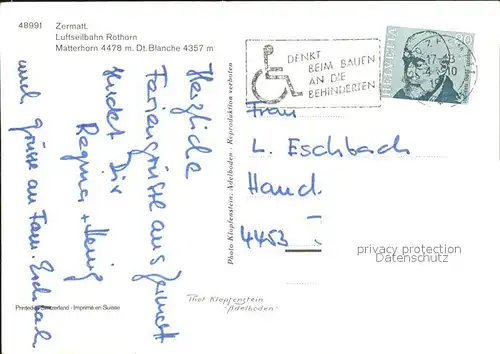 48991
Zermatt.
Luftseilbahn Rothorn
Matterhorn 4478 m. Dt. Blanche 4357 m
DENKT
BEIM BAUEN
AN DIE
BEHINDERTEN
HELVETIA
Herzliche
Feriengrüsse aus Zermatt
sendet Dir
Regina + Heinz
und grüsse an Fam. Eschbach
Photo Klopfenstein, Adelboden - Reproduktion verboten
Frau
L. Eschbach
Hand.
4453
privacy protection
Datenschutz
Printed in Switzerland - Imprimé en Suisse
Phot Klopfenstein
Adelboden